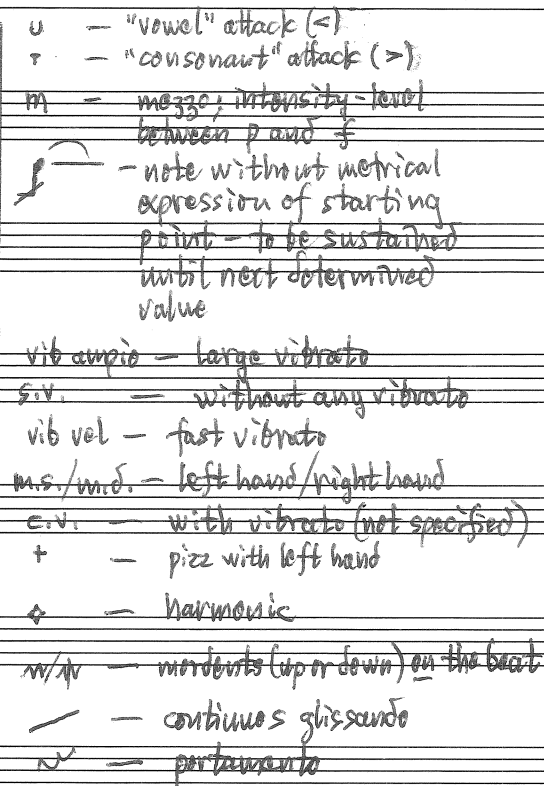 ∪ — "vowel" attack (<)
▾ — "consonant" attack (>)
m — mezzo; intensity-level
between p and f
— note without metrical
expression of starting
point — to be sustained
until next determined
value
vib ampio — large vibrato
s.v. — without any vibrato
vib vel — fast vibrato
m.s./m.d. — left hand/right hand
c.v. — with vibrato (not specified)
+ — pizz with left hand
⋄ — harmonic
— mordents (up or down) on the beat
— continuos glissando
— portamento